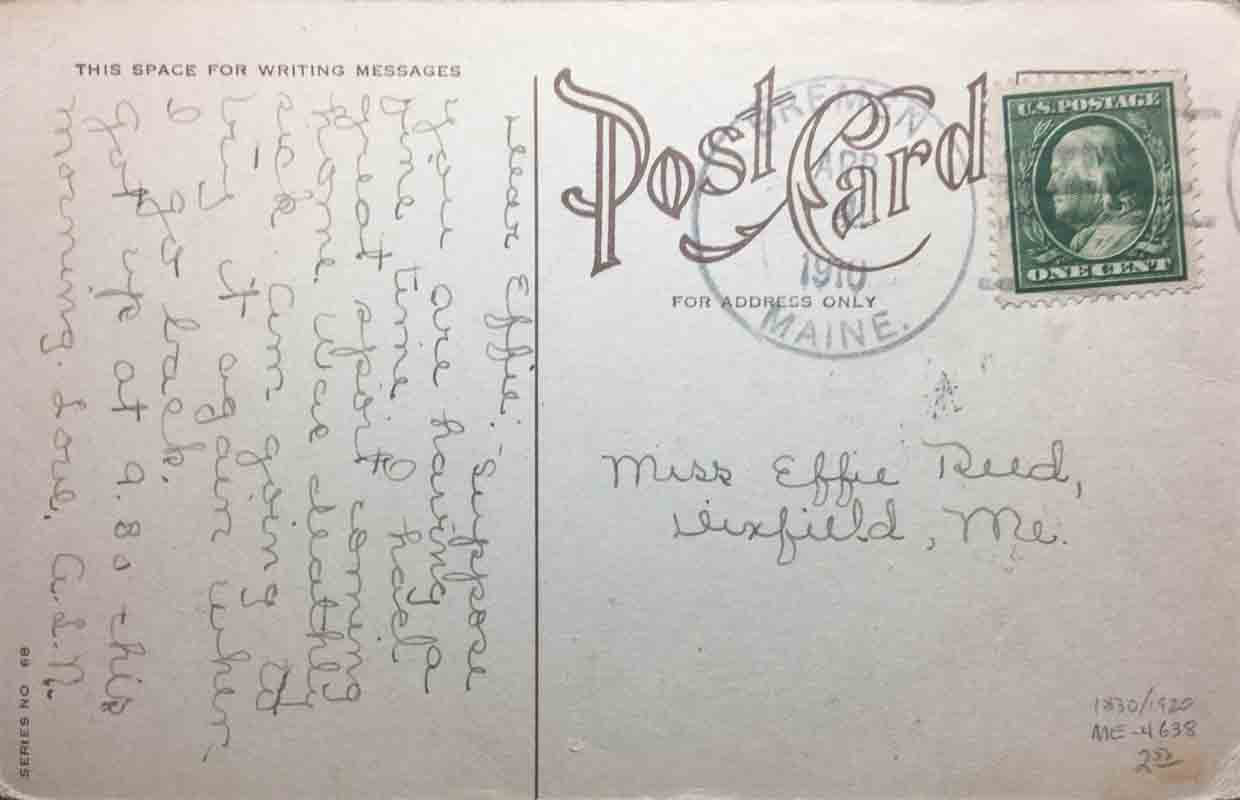 THIS SPACE FOR WRITING MESSAGES
Dear Effie:- Suppose
you are having a
fine time. I had
great sport coming
home. Was deathly
sick. Am going to
try it again when
I go back.
Got up at 9.30 this
morning. Love, A.L.N.
SERIES NO 68
Post Card
FOR ADDRESS ONLY
BREMEN
APR
1910
MAINE.
U.S. POSTAGE
ONE CENT
Miss Effie Reed,
Dixfield, Me.
1830/1920
ME-4638
2.50